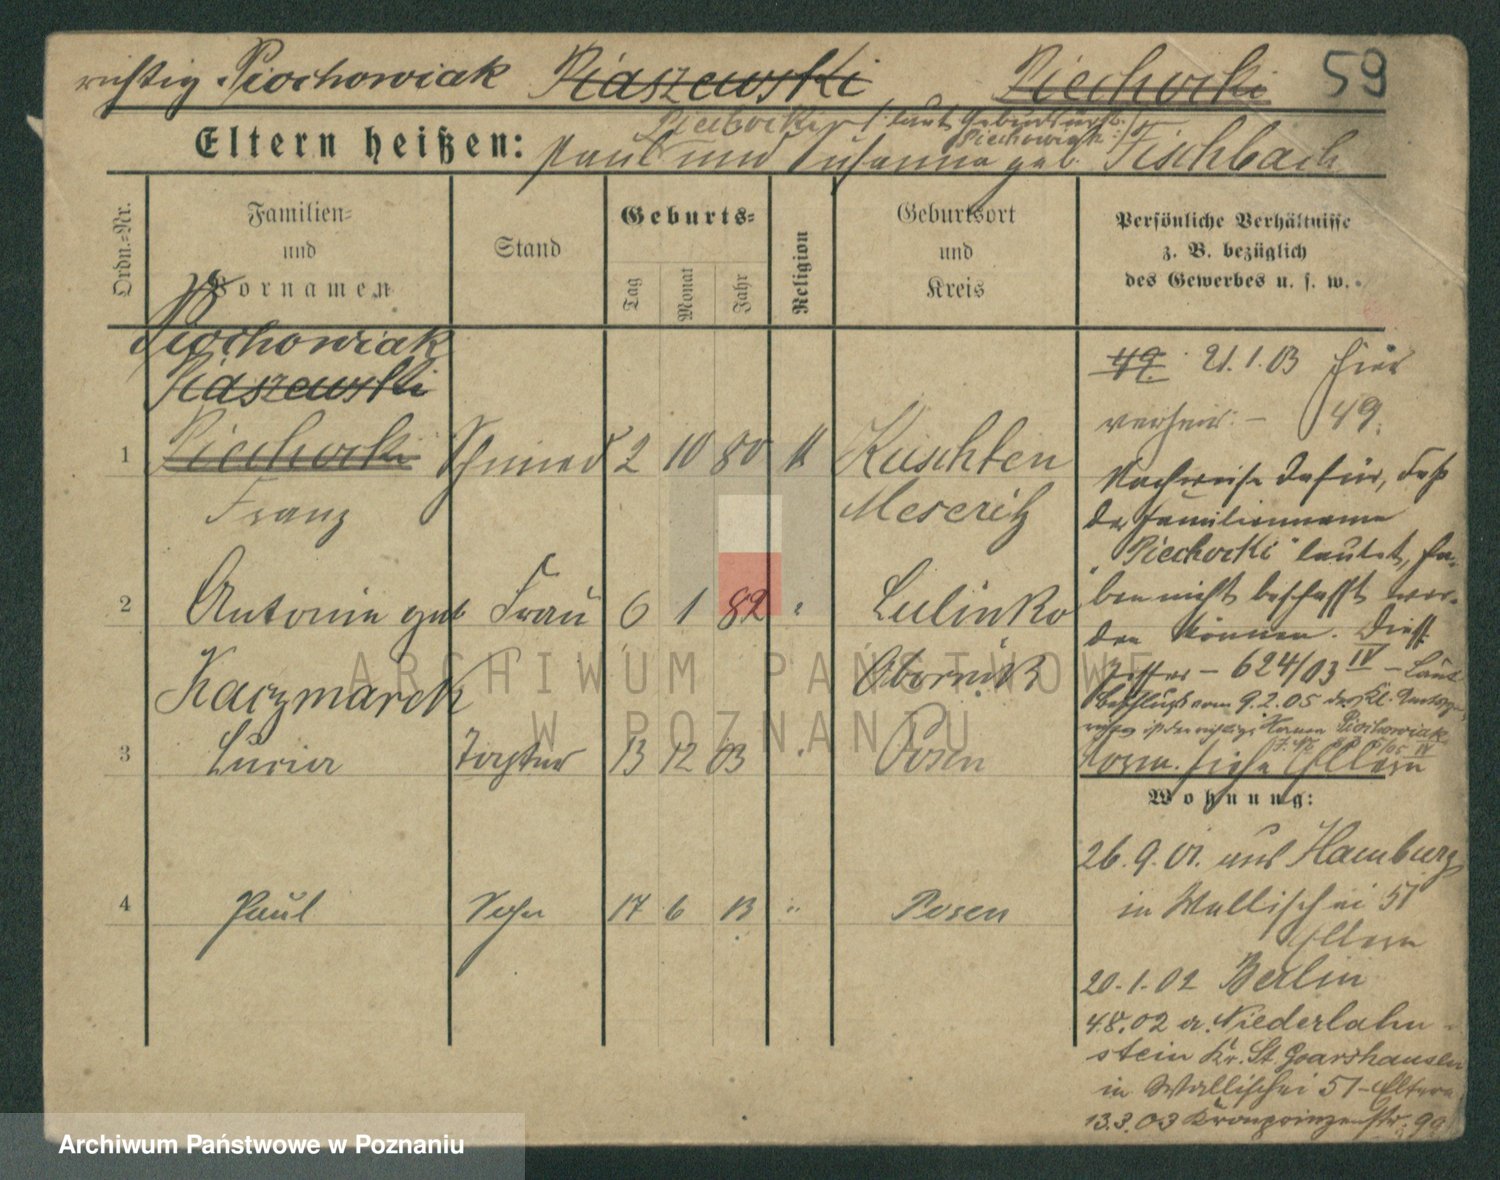 richtig Piochowiak Piaszewski Piechocki 59
Piechocki / laut Geburtsurk.
Piechowiak /
Eltern heißen: Paul und Susanna geb. Fischbach
Ordn.-Nr.
Familien-
und
Vornamen
Stand
Geburts-
Tag Monat Jahr
Religion
Geburtsort
und
Kreis
Persönliche Verhältnisse
z. B. bezüglich
des Gewerbes u. s. w.
Piochowiak
Piaszewski
1 Piechocki Schmied 2 10 80 k Kuschten
Franz Meseritz
2 Antonie geb Frau 6 1 82 " Lulinko
Kaczmarek Obornik
3 Lucia Tochter 13 12 03 " Posen
4 Paul Sohn 17 6 13 " Posen
49. 21.1.03 hier
verheir. – 49.
Nachweise dafür, daß
der Familienname
"Piechocki" lautet, ha-
ben nicht beschafft wer-
den können. Dies.
– 624/03 IV – Laut
Beschluß vom 9.2.05 des Kl. Amtsge-
richtes ist der richtige Namen Piochowiak
05 IV
Form. siehe Eltern
Wohnung:
26.9.01. aus Hamburg
in Wallischei 51
Eltern
20.1.02 Berlin
4.8.02 a. Niederlahn-
stein Kr. St. Goarshausen
in Wallischei 51 - Eltern
13.3.03 Kronprinzenstr. 99
ARCHIWUM PAŃSTWOWE
W POZNANIU
Archiwum Państwowe w Poznaniu